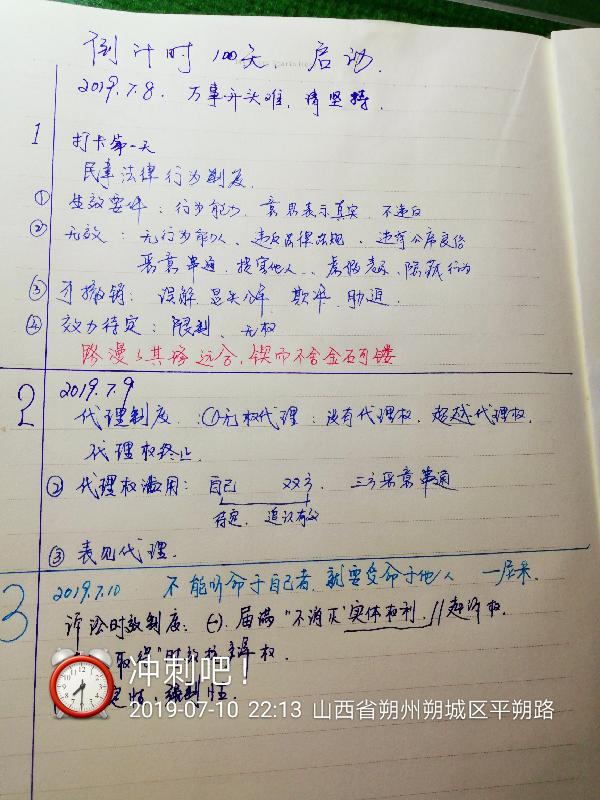 倒计时100天 启动.
2019.7.8. 万事开头难, 请坚持
1 打卡第一天
民事法律行为制度.
① 生效要件: 行为能力, 意思表示真实, 不违反
② 无效: 无行为能力人、违反法律法规、违背公序良俗
恶意串通, 损害他人、虚假表示, 隐藏行为
③ 可撤销: 误解, 显失公平 欺诈, 胁迫.
④ 效力待定: 限制, 无权
路漫漫其修远兮, 锲而不舍金石可镂
2 2019.7.9
代理制度: ①无权代理: 没有代理权, 超越代理权,
代理权终止.
② 代理权滥用: 自己 双方. 三方恶意串通
待定, 追认有效
③ 表见代理.
3 2019.7.10 不能听命于自己者, 就要受命于他人 一尼采.
诉讼时效制度: (一). 届满 "不消灭" 实体权利. // 起诉权.
"取得" 时效抗辩权.
强制性.
冲刺吧!
2019-07-10 22:13 山西省朔州朔城区平朔路